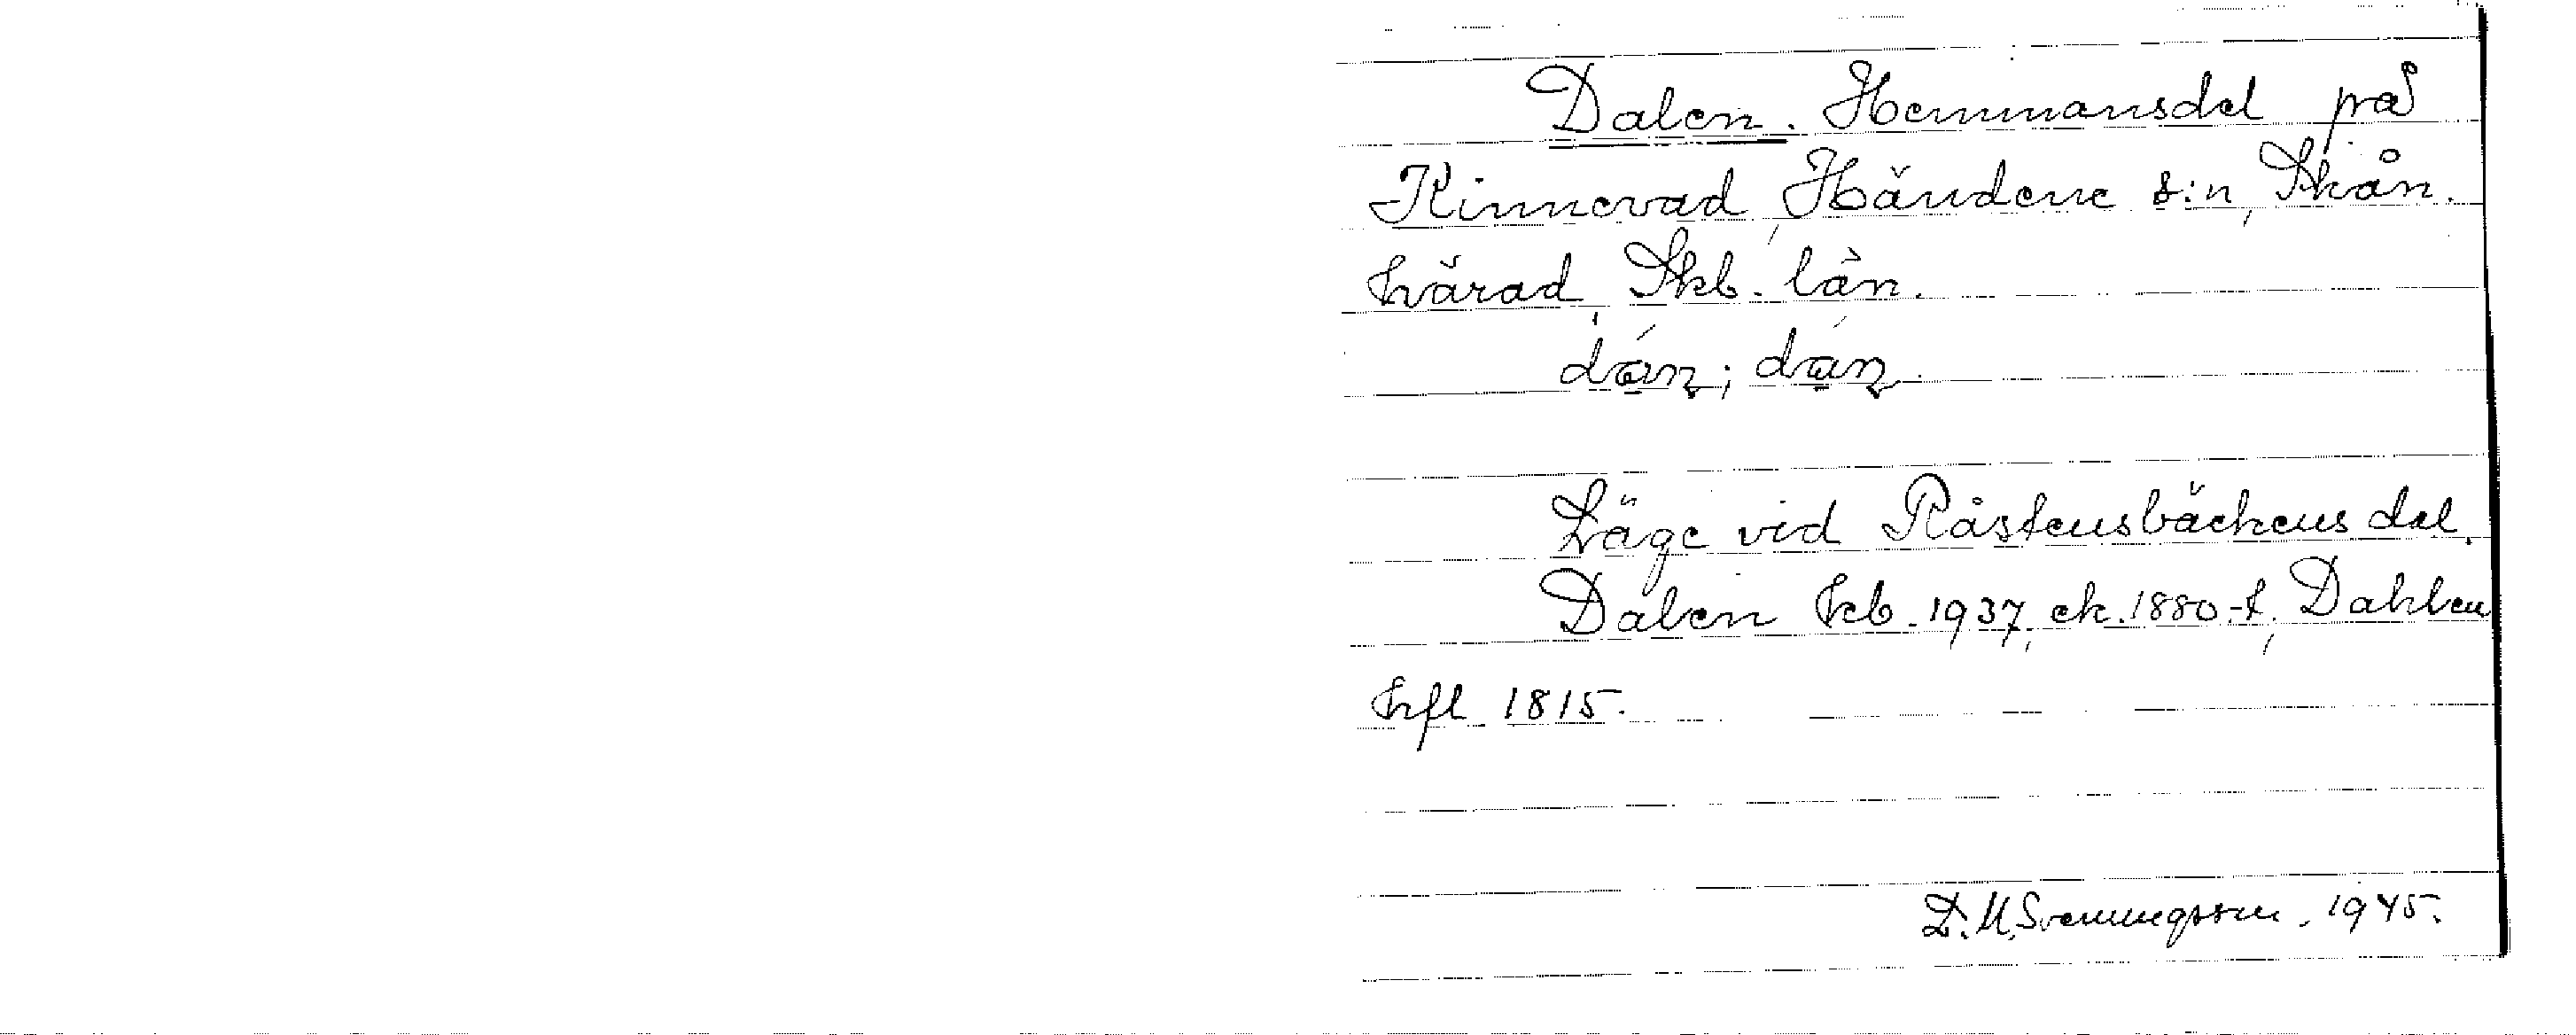 Dalen. Hemmansdel på
Kinnevad, Händene s:n, Skån.
härad, Skb. län.
Läge vid Råstensbäckens dal.
Dalen Jeb. 1937, ek. 1880-t, Dahlen
hfl 1815.
D. M. Svenningsson. 1945.